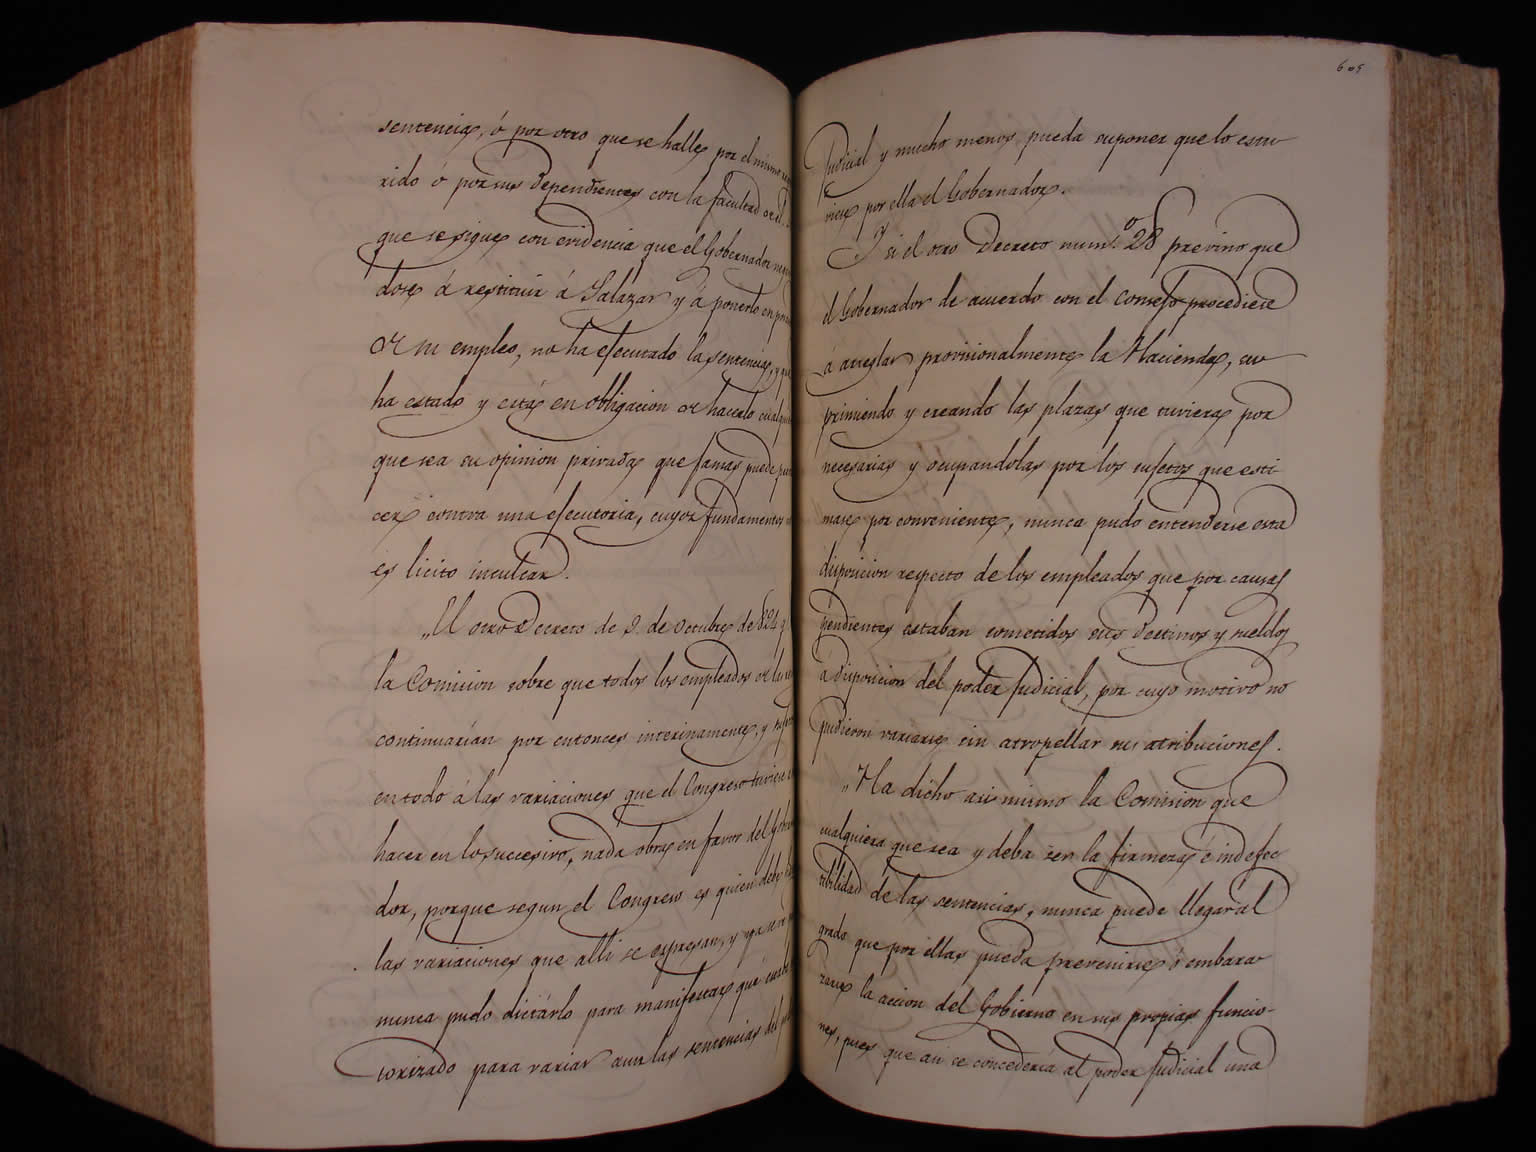 sentencia, ó por otro que se halle por el mismo
rido ó por sus dependientes con la facultad
que se sigue con evidencia que el Gobernador
dose á restituir á Salazar y á ponerlo en
de su empleo, no ha ejecutado la sentencia, y
ha estado y está en obligacion de hacerlo
que sea su opinion privada que jamas puede
cer contra una ejecutoria, cuyos fundamentos
es licito inculcar.
„El otro Decreto de 9. de Octubre de 824
la Comision sobre que todos los empleados de
continuarían por entonces interinamente, y
en todo á las variaciones que el Congreso
hacer en lo succesivo, nada obra en favor del
dor, porque segun el Congreso es quien debe
las variaciones que alli se expresan, y
nunca pudo dictárlo para manifestar que
torizado para variar aun las sentencias del
605
Judicial y mucho menos pueda suponer que lo estu
viese por ella el Gobernador.
Y si el otro Decreto num.º 28 previno que
el Gobernador de acuerdo con el Consejo procediese
á arreglar provisionalmente la Hacienda, su
primiendo y creando las plazas que tuviera por
necesarias y ocupandolas por los sujetos que esti
mase por conveniente, nunca pudo entenderse esta
disposicion respecto de los empleados que por causas
pendientes estaban cometidos sus destinos y sueldos
á disposicion del poder Judicial, por cuyo motivo no
pudieron variarse sin atropellar sus atribuciones.
„Ha dicho asi mismo la Comision que
cualquiera que sea y deba ser la firmeza é indefec
tibilidad de las sentencias, nunca puede llegar al
grado que por ellas pueda prevenirse ó embara
zarse la accion del Gobierno en sus propias funcio-
nes, pues que asi se concedería al poder Judicial una